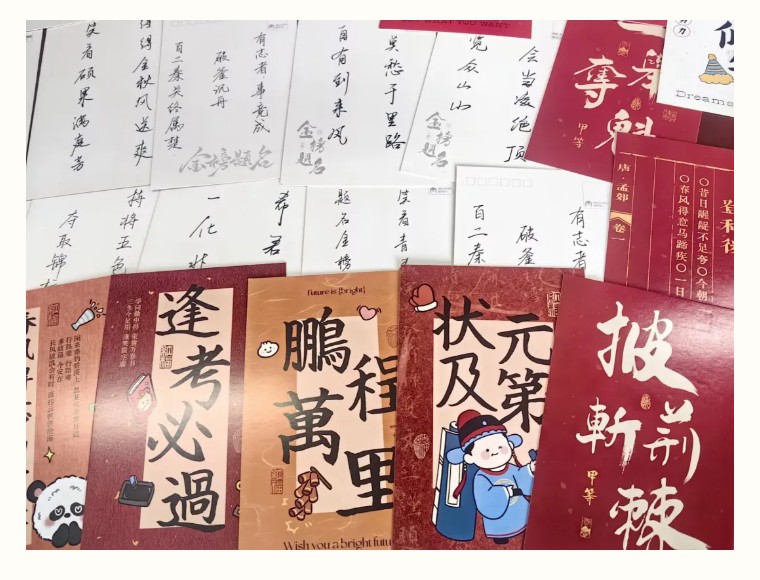 WHAT YOU WANT
得金秋风送爽
笑看硕果满庭芳
有志者事竟成
破釜沉舟
百二秦关终属楚
金榜题名
莫愁千里路
自有到来风
金榜题名
会当凌绝顶
览众山小
魁
奪
甲等
Dreams
持将五色
夺取锦
希君
一化
笑看青
题名金榜
有志者
破釜
百二秦
登科后
〇昔日龌龊不足夸〇今朝
〇春风得意马蹄疾〇一日
唐·孟郊
卷一
逢考必過
future is {bright}
鵬程
萬里
Wish you a bright futu
状元
及第
披荆
斬棘
甲等